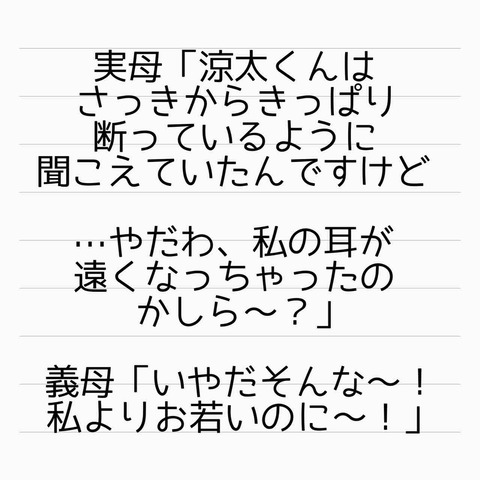 実母「涼太くんは
さっきからきっぱり
断っているように
聞こえていたんですけど
…やだわ、私の耳が
遠くなっちゃったの
かしら〜？」
義母「いやだそんな〜！
私よりお若いのに〜！」